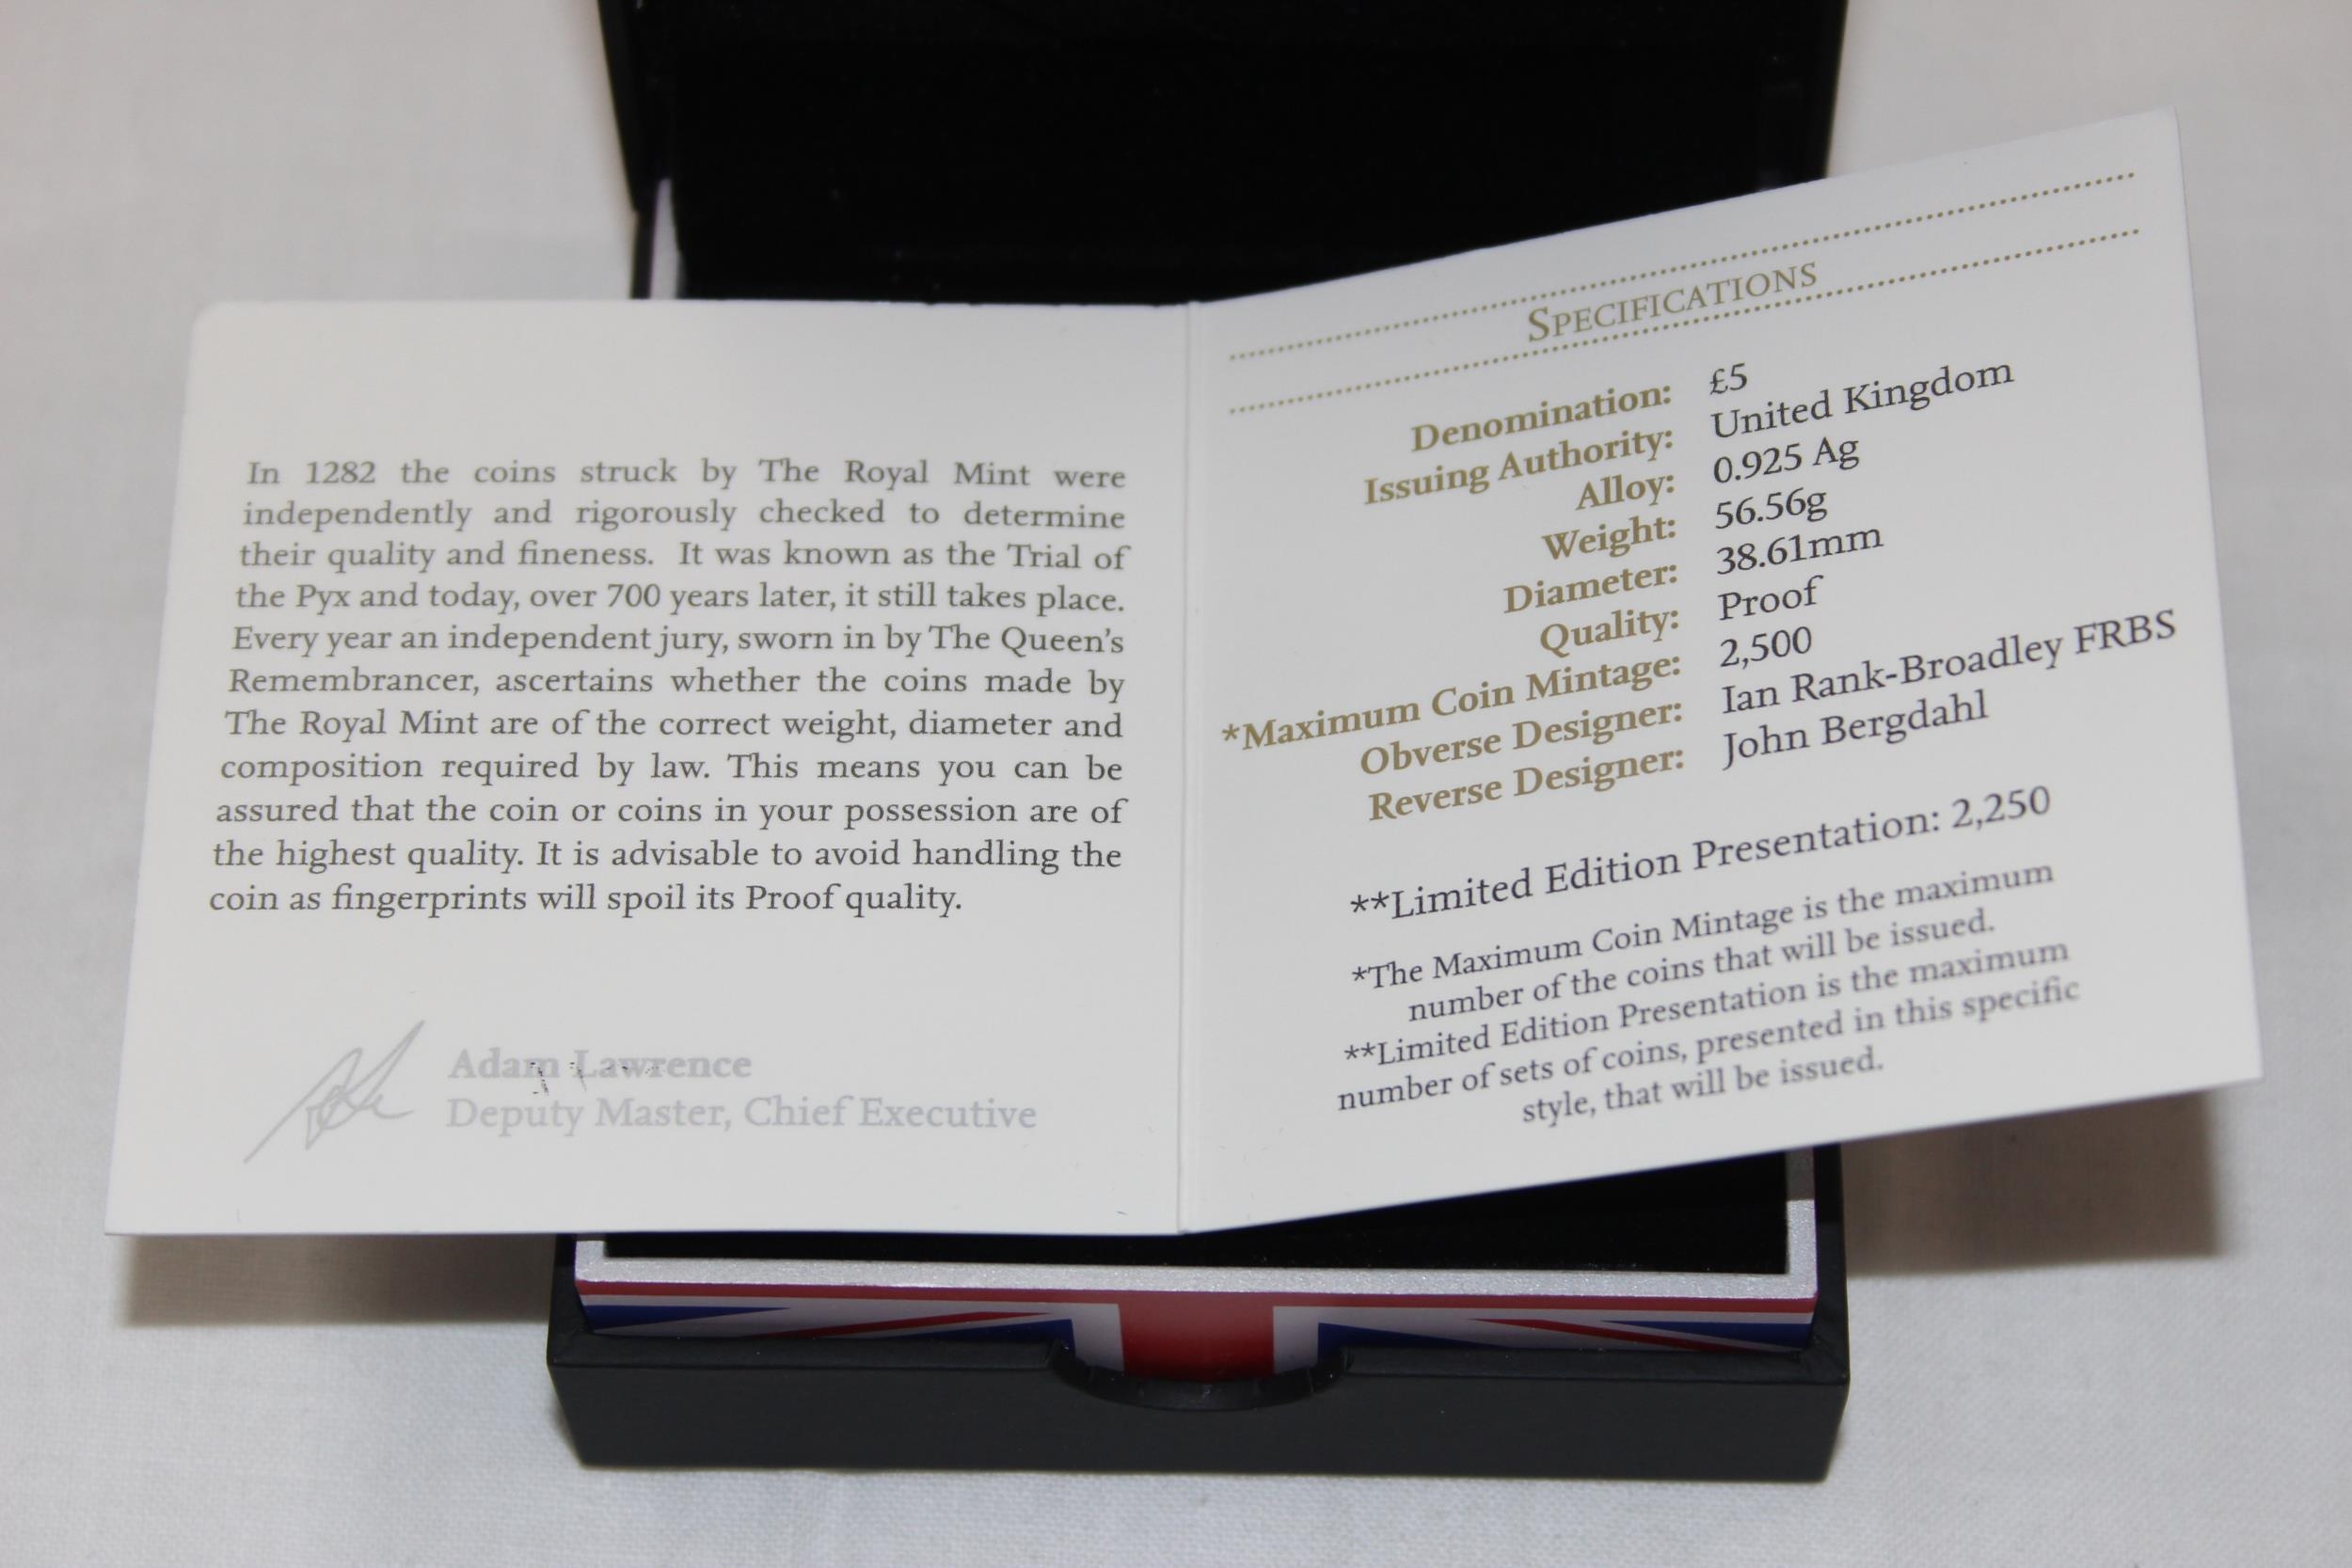 In 1282 the coins struck by The Royal Mint were
independently and rigorously checked to determine
their quality and fineness. It was known as the Trial of
the Pyx and today, over 700 years later, it still takes place.
Every year an independent jury, sworn in by The Queen's
Remembrancer, ascertains whether the coins made by
The Royal Mint are of the correct weight, diameter and
composition required by law. This means you can be
assured that the coin or coins in your possession are of
the highest quality. It is advisable to avoid handling the
coin as fingerprints will spoil its Proof quality.
Adam Lawrence
Deputy Master, Chief Executive
SPECIFICATIONS
Denomination: £5
Issuing Authority: United Kingdom
Alloy: 0.925 Ag
Weight: 56.56g
Diameter: 38.61mm
Quality: Proof
*Maximum Coin Mintage: 2,500
Obverse Designer: Ian Rank-Broadley FRBS
Reverse Designer: John Bergdahl
**Limited Edition Presentation: 2,250
*The Maximum Coin Mintage is the maximum
number of the coins that will be issued.
**Limited Edition Presentation is the maximum
number of sets of coins, presented in this specific
style, that will be issued.